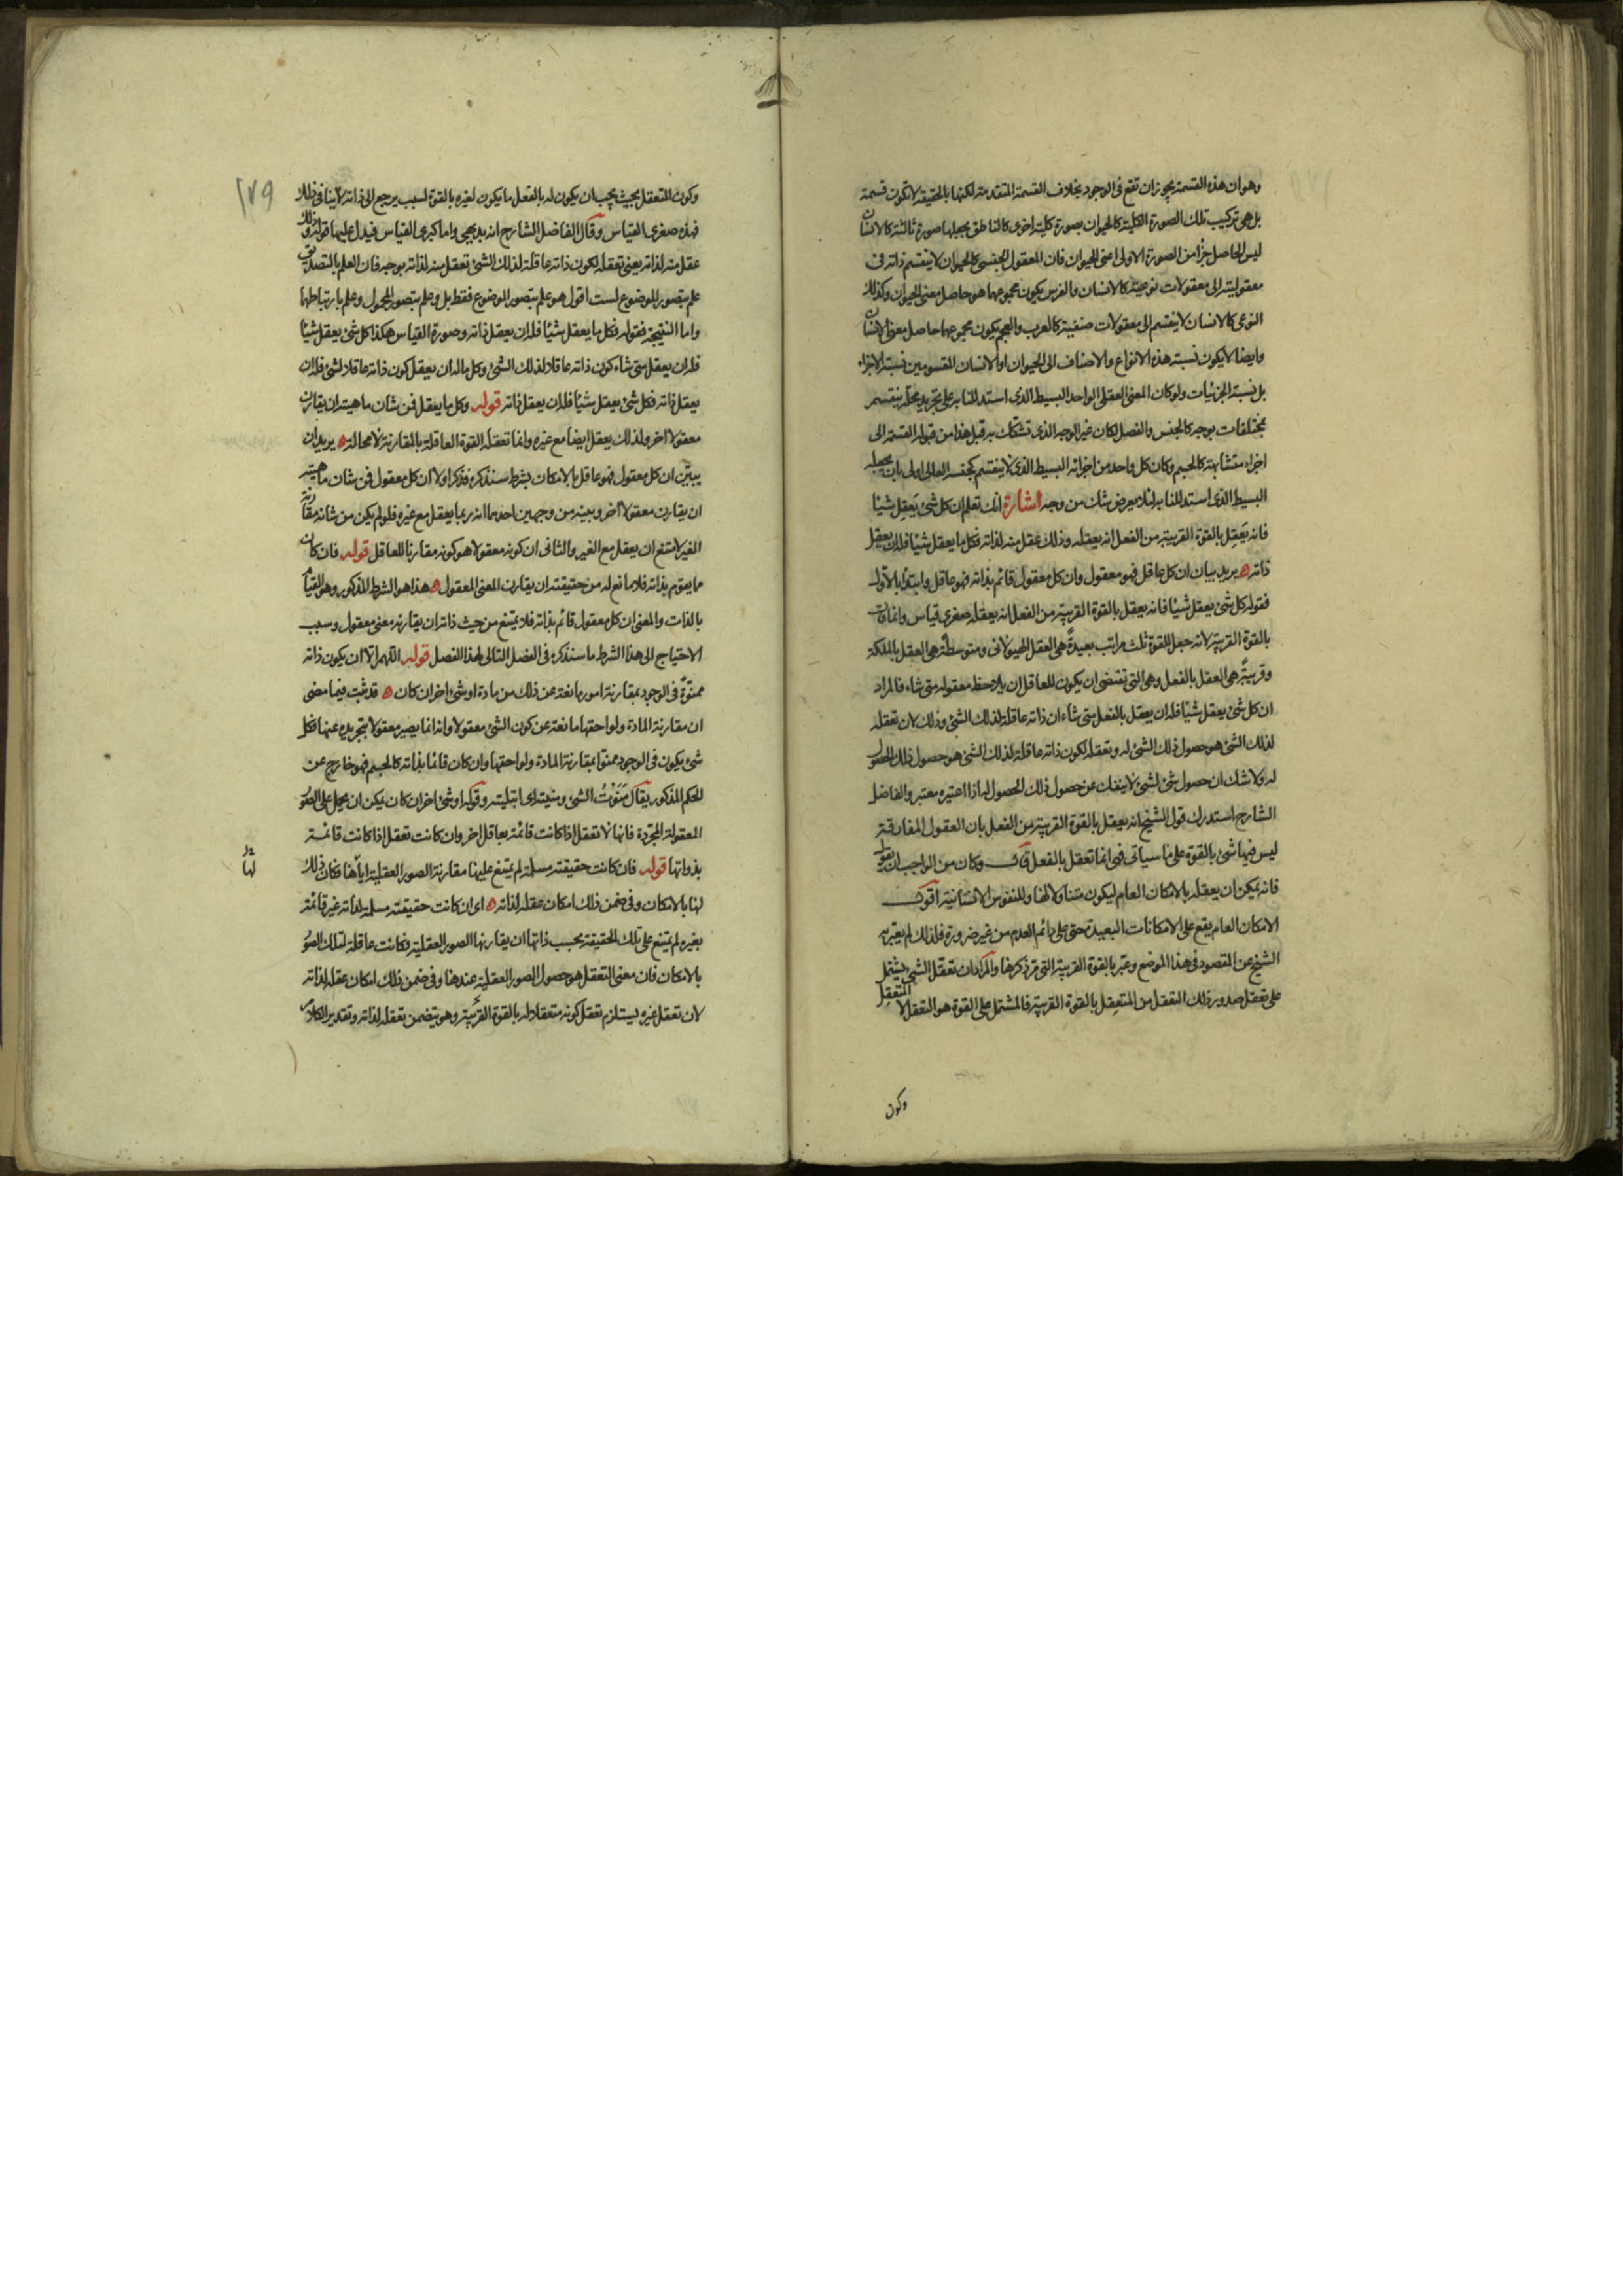 وهو ان هذه القسمة يجوز ان تقع فى الوجود بخلاف القسمة المتقدمة لكنها بالحقيقة لا تكون قسمة
بل هى تركيب تلك الصورة الكلية كالحيوان بصورة كلية اخرى كالناطق يجعلها صورة ثالثة كالانسان
ليس الحاصل جزأ من الصورة الاولى اعنى الحيوان فان المعقول الجنسى كالحيوان لا ينقسم ذاته فى
معقوليته الى معقولات نوعية كالانسان والفرس يكون مجموعها هو حاصل معنى الحيوان وكذلك
النوعى كالانسان لا ينقسم الى معقولات صنفية كالعرب والعجم يكون مجموعها حاصل معنى الانسان
وايضا لا يكون نسبة هذه الانواع والاصناف الى الحيوان او الانسان المقسومين نسبة الاجزاء
بل نسبة الجزئيات ولو كان المعنى العقلى الواحد البسيط الذى استدللنا به على تجريد محله ينقسم
بمختلفات بوجه كالجنس والفصل لكان غير الوجه الذى تشكك به قبل هذا من قبوله القسمة الى
اجزاء متشابهة كالجسم وكان كل واحد من اجزائه البسيط الذى لا ينقسم كجنسه العالى اولى بان يجعله
البسيط الذى استدللنا به لئلا يعرض شك من وجه اشارة انك تعلم ان كل شئ يَعقِل شيئا
فانه يَعقِل بالقوة القريبة من الفعل انه يعقله وذلك عقل منه لذاته فكل ما يعقل شيئا فله ان يعقل
ذاته ه يريد بيان ان كل عاقل فهو معقول وان كل معقول قائم بذاته فهو عاقل وابتدأ بالاول
فقوله كل شئ يعقل شيئا فانه يعقل بالقوة القريبة من الفعل انه يعقله صغرى قياس وانما قال
بالقوة القريبة لانه جعل للقوة ثلث مراتب بعيدةً هى العقل الهيولانى ومتوسطةً هى العقل بالملكة
وقريبةً هى العقل بالفعل وهى التى تقتضى ان يكون للعاقل ان يلاحظ معقوله متى شاء فالمراد
ان كل شئ يعقل شيئا فله ان يعقل بالفعل متى شاء ان ذاته عاقلة لذلك الشئ وذلك لان تعقله
لذلك الشئ هو حصول ذلك الشئ له وتعقله لكون ذاته عاقلة لذلك الشئ هو حصول ذلك الحصول
له ولا شك ان حصول شئ لشئ لا ينفك عن حصول ذلك الحصول له اذا اعتبره معتبر والفاضل
الشارح استدرك قول الشيخ انه يعقل بالقوة القريبة من الفعل بان العقول المفارقة
ليس فيها شئ بالقوة على ما سياتى فهى انما تعقل بالفعل قال وكان من الواجب ان يقول
فانه يمكن ان يعقله بالامكان العام ليكون متناولا لها وللنفوس الانسانية اقول
الامكان العام يقع على الامكانات البعيدة حتى على دائم العدم من غير ضرورة فلذلك لم يعتبر به
الشيخ عن المقصود فى هذا الموضع وعبر بالقوة القريبة التى مر ذكرها والمراد ان تعقل الشئ يشتمل
على تعقل صدور ذلك التعقل من المتعقِل بالقوة القريبة فالمشتمل على القوة هو التعقل لا المتعقِل
وكون
١٧٩
وكون المتعقل بحيث يجب ان يكون له بالفعل ما يكون لغيره بالقوة لسبب يرجع الى ذاته لا ينافى ذلك
فهذه صغرى القياس وقال الفاضل الشارح انه بديهى واما كبرى القياس فيدل عليها قوله وذلك
عقل منه لذاته يعنى تعقله لكون ذاته عاقلة لذلك الشئ تعقل منه لذاته بوجه فان العلم بالتصديق
علم بتصور الموضوع لست اقول هو علم بتصور الموضوع فقط بل وعلم بتصور المحمول وعلم بارتباطها
واما النتيجة فقوله فكل ما يعقل شيئا فله ان يعقل ذاته وصورة القياس هكذا كل شئ يعقل شيئا
فله ان يعقل متى شاء كون ذاته عاقلا لذلك الشئ وكل ما له ان يعقل كون ذاته عاقلا لشئ فله ان
يعقل ذاته فكل شئ يعقل شيئا فله ان يعقل ذاته قوله وكل ما يعقل فمن شان ماهيته ان يقارن
معقولا اخر ولذلك يعقل ايضا مع غيره وانما تعقله القوة العاقلة بالمقارنة لا محالة ه يريد ان
يبيّن ان كل معقول فهو عاقل بالامكان بشرط سنذكره فذكر اولا ان كل معقول فمن شان ماهيته
ان يقارن معقولا اخر وبينه من وجهين احدهما انه ربما يعقل مع غيره فلو لم يكن من شانه مقارنة
الغير لامتنع ان يعقل مع الغير والثانى ان كونه معقولا هو كونه مقارنا للعاقل قوله فان كان
مما يقوم بذاته فلا مانع له من حقيقته ان يقارن المعنى المعقول ه هذا هو الشرط المذكور وهو القيام
بالذات والمعنى ان كل معقول قائم بذاته فلا يمتنع من حيث ذاته ان يقارنه معنى معقول وسبب
الاحتياج الى هذا الشرط ما سنذكره فى الفصل التالى لهذا الفصل قوله اللهم الا ان يكون ذاته
ممنوّة فى الوجود بمقارنة امور مانعة عن ذلك من مادة او شئ اخر ان كان ه قد ثبت فيما مضى
ان مقارنة المادة ولواحقها مانعة عن كون الشئ معقولا وانه انما يصير معقولا بتجريده عنها فكل
شئ يكون فى الوجود ممنوّا بمقارنة المادة ولواحقها وان كان قائما بذاته كالجسم فهو خارج عن
الحكم المذكور يقال مَنَوْتُ الشئ ومنيته اى ابتليته وقوله او شئ اخر ان كان يمكن ان يحمل على الصور
المعقولة المجردة فانها لا تعقل اذا كانت قائمة بعاقل اخر وان كانت تعقل اذا كانت قائمة
بذواتها قوله فان كانت حقيقته مسلمة لم يمتنع عليها مقارنة الصور العقلية اياها فكان ذلك
لها بالامكان وفى ضمن ذلك امكان عقله لذاته ه اى ان كانت حقيقته مسلمة لذاته غير قائمة
بغيره لم يمتنع على تلك الحقيقة بحسب ذاتها ان يقارنها الصور العقلية فكانت عاقلة لتلك الصور
بالامكان فان معنى التعقل هو حصول الصور العقلية عندها وفى ضمن ذلك امكان عقله لذاته
لان تعقل غيره يستلزم تعقل كونه متعقلا له بالقوة القريبة وهو يتضمن تعقله لذاته وتقدير الكلام
لها